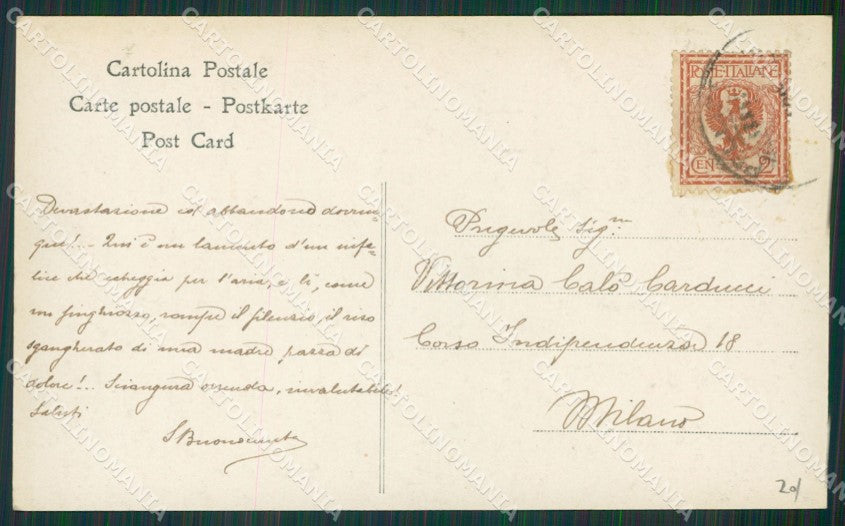 Cartolina Postale
Carte postale - Postkarte
Post Card
POSTE·ITALIANE
CENT 2
Devastazione ed abbandono dovun-
que!... Qui è un lamento d'un infe-
lice che echeggia per l'aria, e lì, come
un singhiozzo, rompe il silenzio il riso
sgangherato di una madre pazza di
dolore!.. Sciangura orrenda, invalutabile!
Saluti
Pregevole Sig.na
Vittorina Calò Carducci
Corso Indipendenza 18
Milano
20/
CARTOLINOMANIA